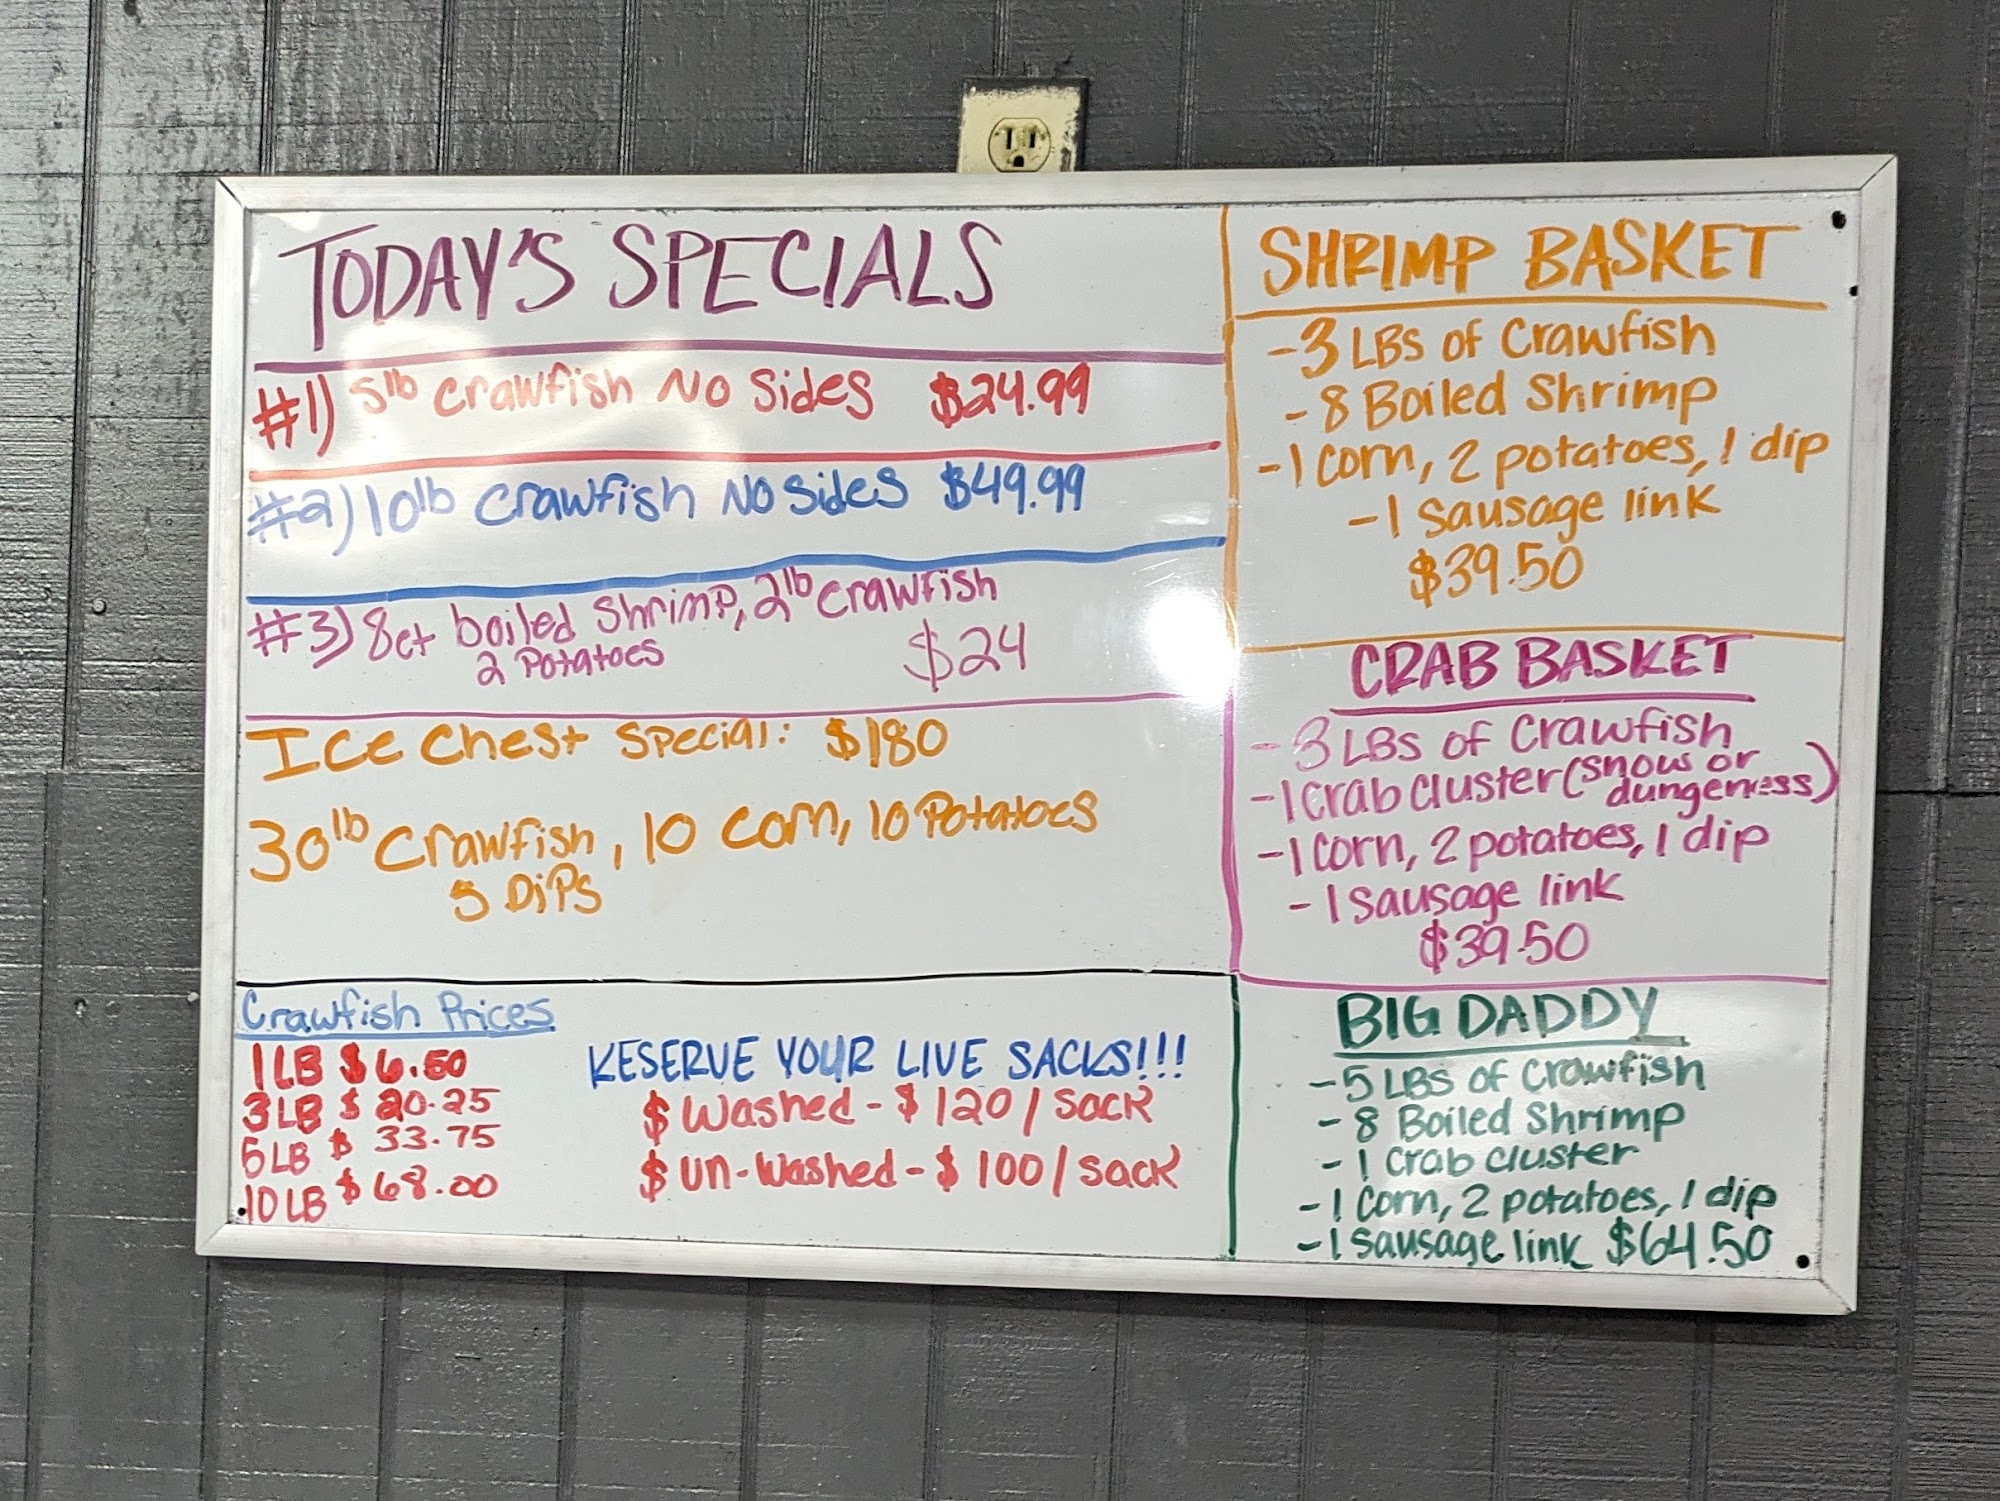 TODAY'S SPECIALS
#1) 5lb crawfish No Sides $24.99
#2) 10lb crawfish No sides $49.99
#3) 8ct boiled shrimp, 2lb crawfish
2 Potatoes $24
Ice Chest Special: $180
30lb crawfish, 10 corn, 10 Potatoes
5 Dips
Crawfish Prices
1 LB $6.50
3 LB $20.25
5 LB $33.75
10 LB $68.00
RESERVE YOUR LIVE SACKS!!!
$ Washed - $120/sack
$ un-washed - $100/sack
SHRIMP BASKET
-3 LBS of Crawfish
-8 Boiled Shrimp
-1 corn, 2 potatoes, 1 dip
-1 sausage link
$39.50
CRAB BASKET
-3 LBS of Crawfish
-1 crab cluster (snow or
dungeness)
-1 corn, 2 potatoes, 1 dip
-1 sausage link
$39.50
BIG DADDY
-5 LBS of crawfish
-8 Boiled Shrimp
-1 crab cluster
-1 corn, 2 potatoes, 1 dip
-1 sausage link $64.50